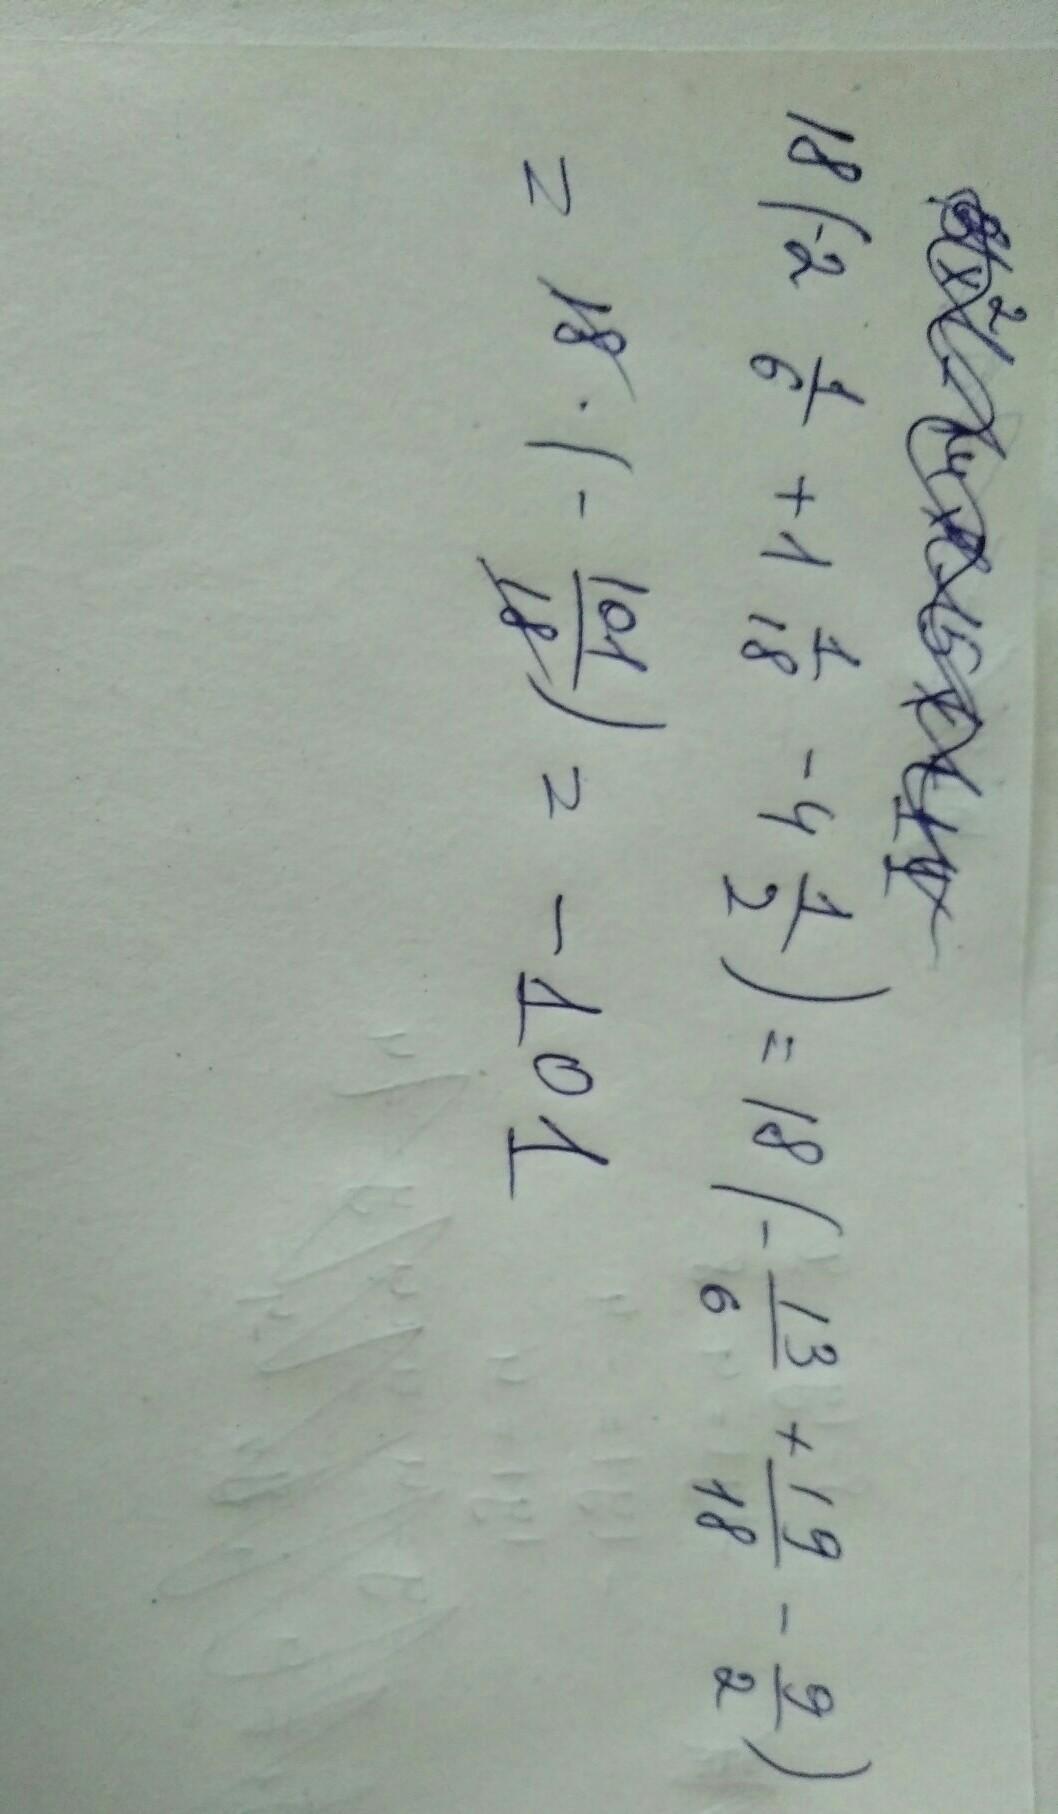 18(-2 1/6 + 1 1/18 - 4 1/2) = 18(- 13/6 + 19/18 - 9/2)
= 18 · (- 101/18) = - 101